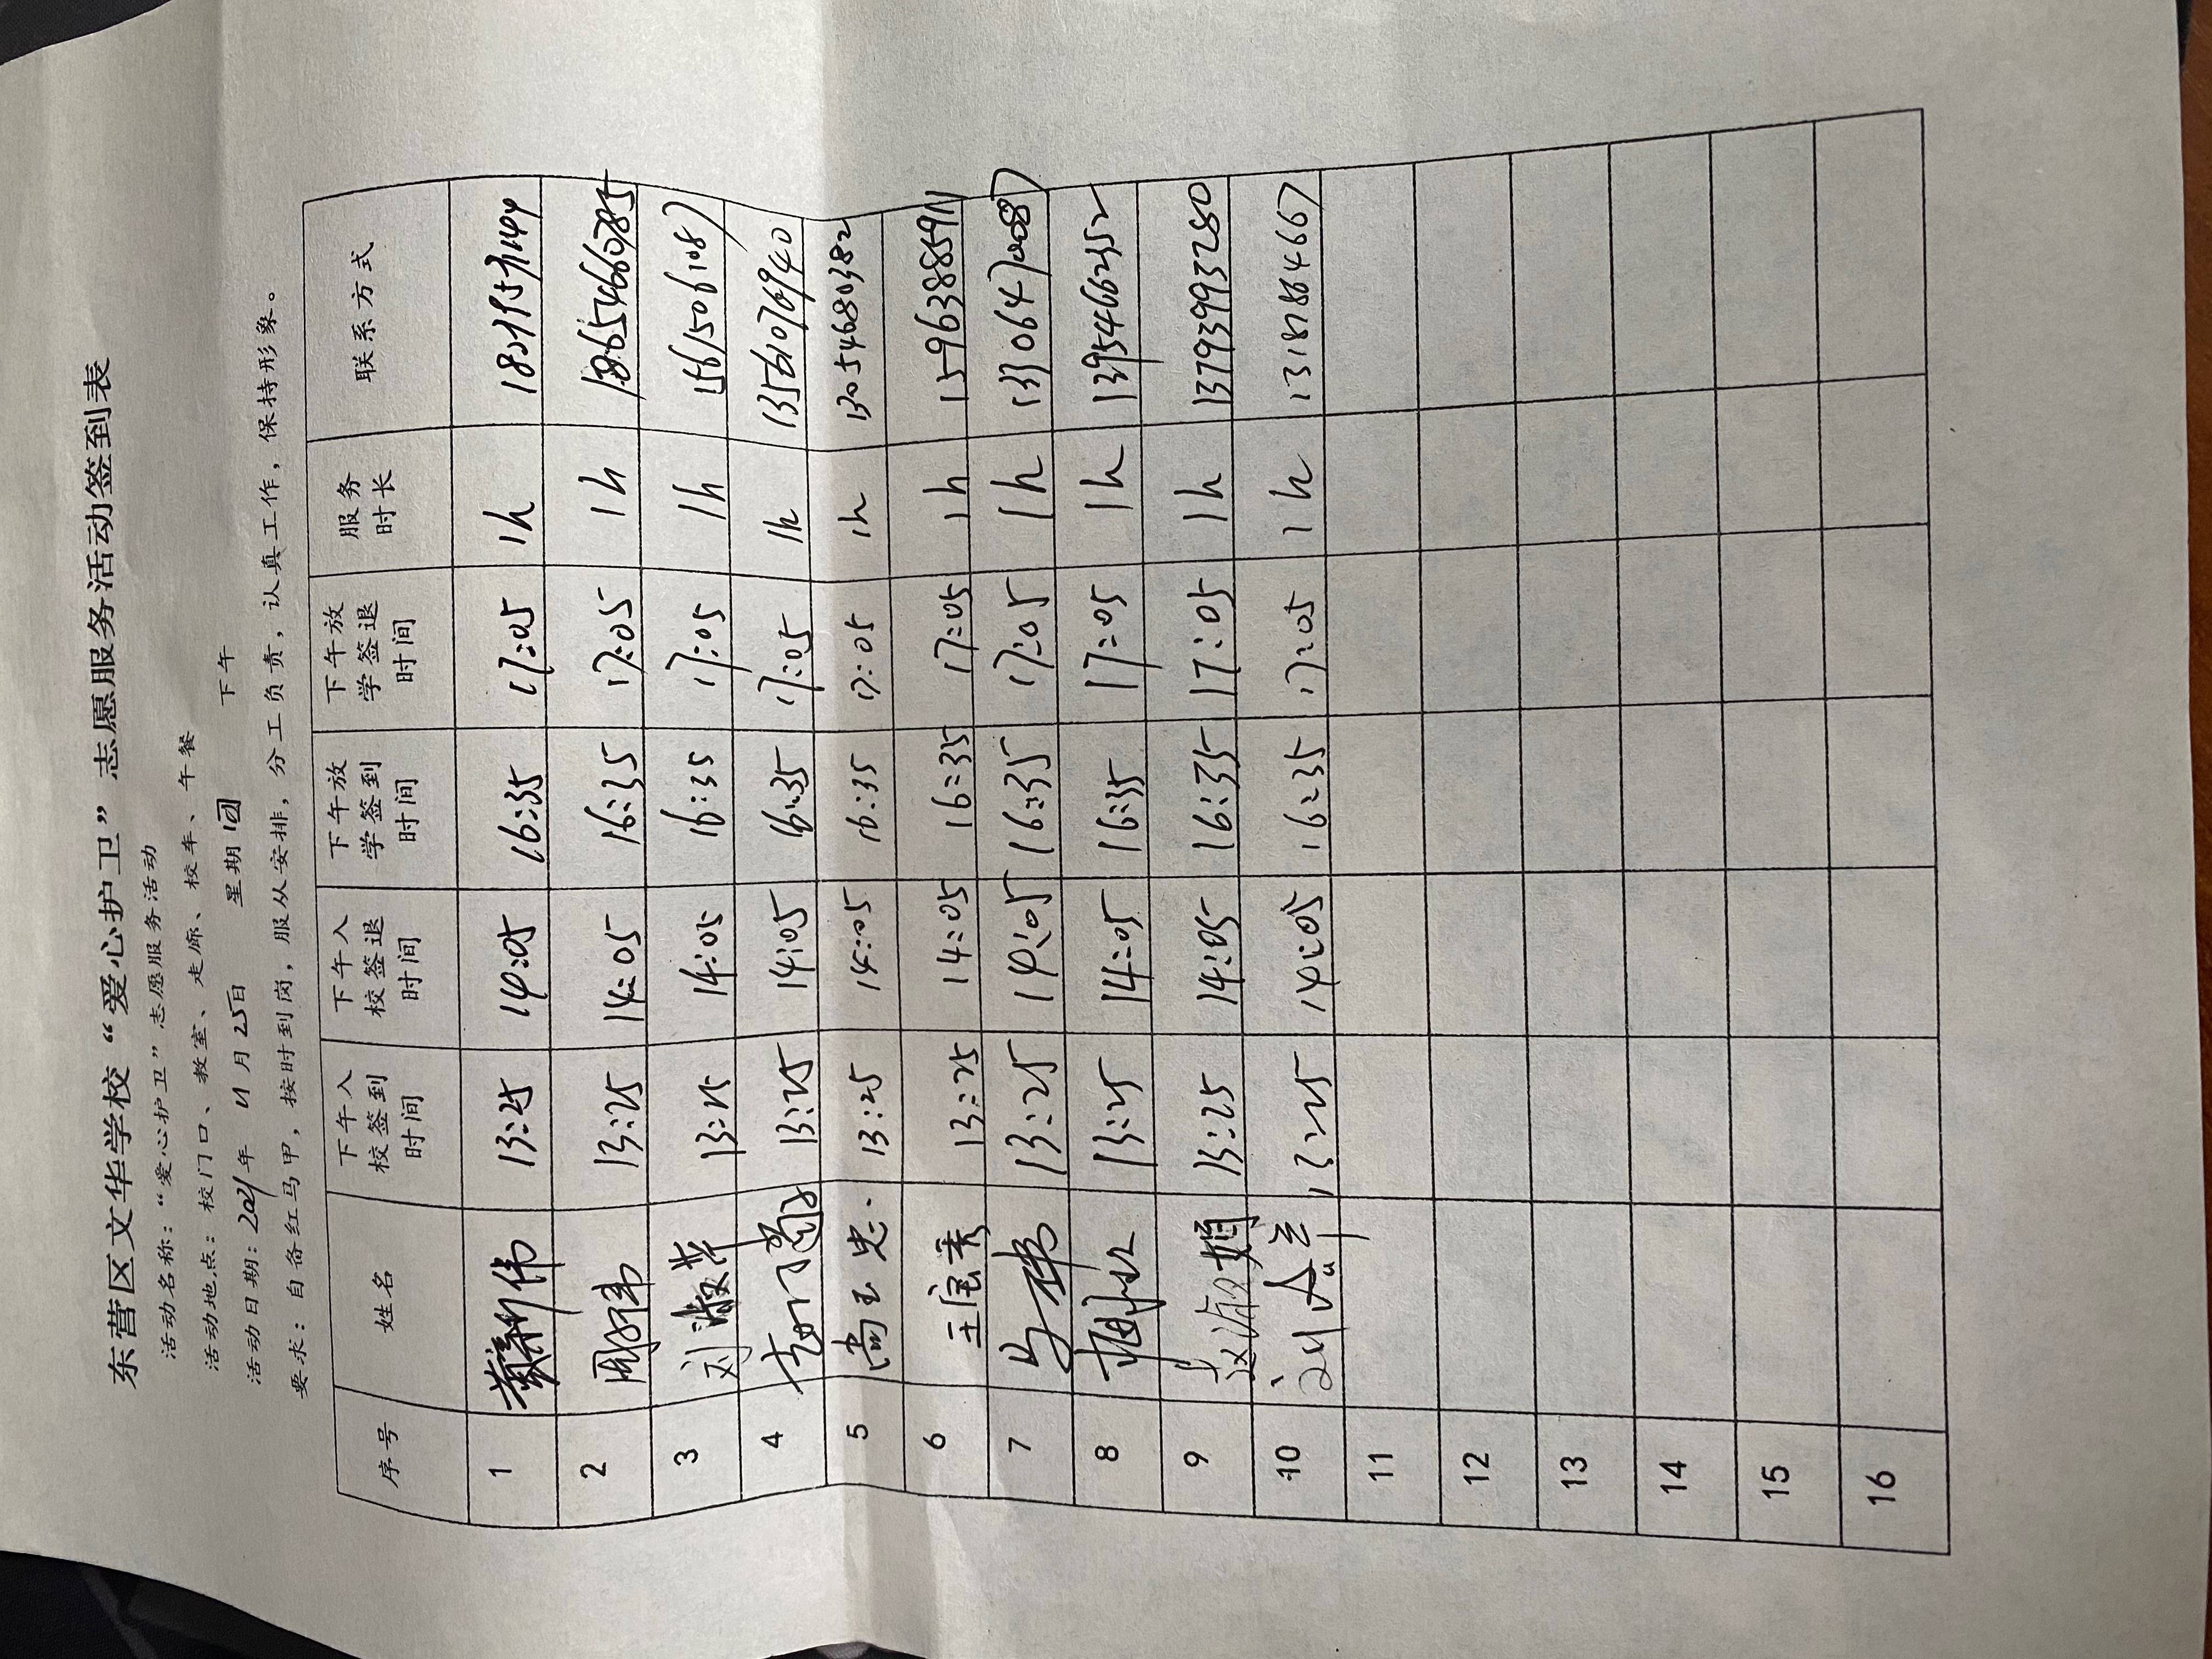 东营区文华学校“爱心护卫”志愿服务活动签到表
活动名称：“爱心护卫”志愿服务活动
活动地点：校门口、教室、走廊、校车、午餐
活动日期：2021年 11月25日 星期四 下午
要求：自备红马甲，按时到岗，服从安排，分工负责，认真工作，保持形象。
序号 姓名 下午入校签到时间 下午入校签退时间 下午放学签到时间 下午放学签退时间 服务时长 联系方式
1 13:25 14:05 16:35 17:05 1h
2 13:25 14:05 16:35 17:05 1h 18654660785
3 刘淑苹 13:25 14:05 16:35 17:05 1h 15615061087
4 13:25 14:05 16:35 17:05 1h 13561070940
5 尚玉忠 13:25 14:05 16:35 17:05 1h 13054680382
6 王宝秀 13:25 14:05 16:35 17:05 1h 15963885911
7 13:25 14:05 16:35 17:05 1h
8 13:25 14:05 16:35 17:05 1h 13954662352
9 13:25 14:05 16:35 17:05 1h 13793993280
10 13:25 14:05 16:35 17:05 1h 13181864667
11
12
13
14
15
16